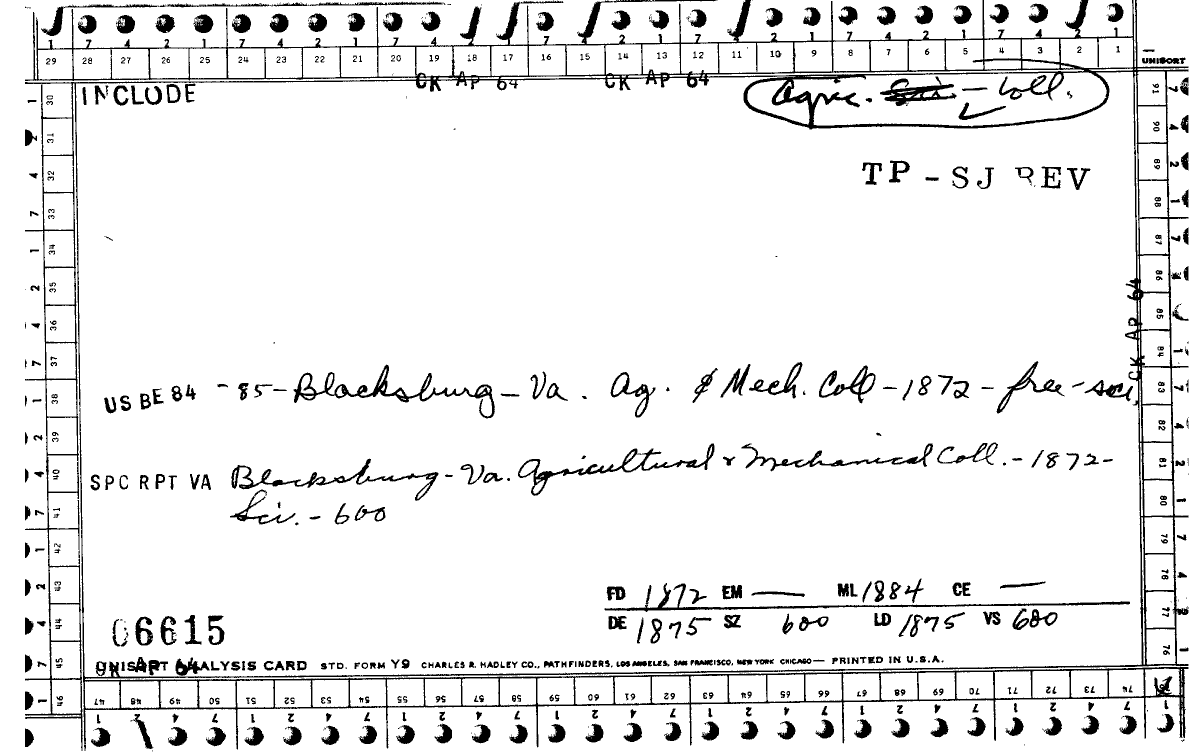 1 7 4 2 1 7 4 2 1 7 4 2 1 7 4 2 1 7 4 2 1 7 4 2 1 7 4 2 1
29 28 27 26 25 24 23 22 21 20 19 18 17 16 15 14 13 12 11 10 9 8 7 6 5 4 3 2 1
UNISORT
CK AP 64 CK AP 64
INCLUDE
Agric. - Coll.
TP - SJ REV
CK AP 64
US BE 84 -85- Blacksburg - Va. Ag. & Mech. Coll - 1872 - free - sci.
SPC RPT VA Blacksburg - Va. Agricultural & Mechanical Coll. - 1872 -
Sci. - 600
FD 1872 EM — ML 1884 CE —
DE 1875 SZ 600 LD 1875 VS 600
06615
UNISORT ANALYSIS CARD STD. FORM Y9 CHARLES R. HADLEY CO., PATHFINDERS, LOS ANGELES, SAN FRANCISCO, NEW YORK CHICAGO — PRINTED IN U.S.A.
CK AP 64
30 31 32 33 34 35 36 37 38 39 40 41 42 43 44 45 46
47 48 49 50 51 52 53 54 55 56 57 58 59 60 61 62 63 64 65 66 67 68 69 70 71 72 73 74
76 77 78 79 80 81 82 83 84 85 86 87 88 89 90 91